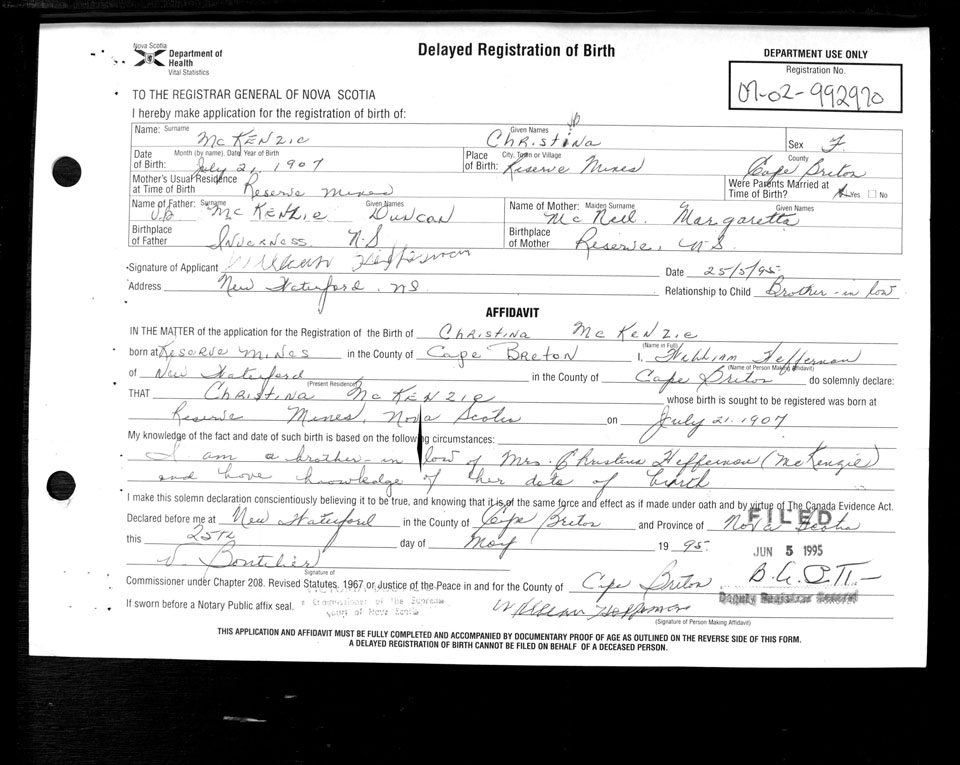 Nova Scotia
Department of
Health
Vital Statistics
Delayed Registration of Birth
DEPARTMENT USE ONLY
Registration No.
07-02-992970
TO THE REGISTRAR GENERAL OF NOVA SCOTIA
I hereby make application for the registration of birth of:
Name: Surname McKENZie Given Names Christina Sex F
Date of Birth: Month (by name), Date Year of Birth July 21, 1907 Place of Birth: City, Town or Village Reserve Mines County Cape Breton
Mother's Usual Residence at Time of Birth Reserve Mines Were Parents Married at Time of Birth? Yes No
Name of Father: Surname McKENZie Given Names Duncan Name of Mother: Maiden Surname McNeil Given Names Margaretta
Birthplace of Father Inverness N.S Birthplace of Mother Reserve, N.S.
Signature of Applicant William Heffernan Date 25/5/95
Address New Waterford, NS Relationship to Child Brother-in law
AFFIDAVIT
IN THE MATTER of the application for the Registration of the Birth of Christina McKenzie
(Name in Full)
born at Reserve Mines in the County of Cape Breton I, William Heffernan
(Name of Person Making Affidavit)
of New Waterford in the County of Cape Breton do solemnly declare:
(Present Residence)
THAT Christina McKENZie whose birth is sought to be registered was born at
Reserve Mines, Nova Scotia on July 21, 1907
My knowledge of the fact and date of such birth is based on the following circumstances:
I am a brother-in law of Mrs. Christina Heffernan (McKenzie)
and have knowledge of her date of birth
I make this solemn declaration conscientiously believing it to be true, and knowing that it is of the same force and effect as if made under oath and by virtue of The Canada Evidence Act.
Declared before me at New Waterford in the County of Cape Breton and Province of Nova Scotia
FILED
this 25th day of May 19 95.
JUN 5 1995
Signature of
Commissioner under Chapter 208. Revised Statutes, 1967 or Justice of the Peace in and for the County of Cape Breton
Deputy Registrar General
If sworn before a Notary Public affix seal. A Commissioner of the Supreme
Court of Nova Scotia
William Heffernan
(Signature of Person Making Affidavit)
THIS APPLICATION AND AFFIDAVIT MUST BE FULLY COMPLETED AND ACCOMPANIED BY DOCUMENTARY PROOF OF AGE AS OUTLINED ON THE REVERSE SIDE OF THIS FORM.
A DELAYED REGISTRATION OF BIRTH CANNOT BE FILED ON BEHALF OF A DECEASED PERSON.